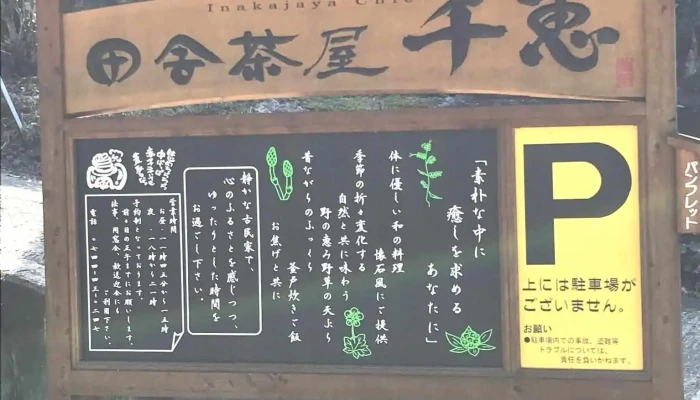 Inakajaya Chie
田舎茶屋 千恵
「素朴な中に
癒しを求める
あなたに」
体に優しい和の料理
懐石風にご提供
季節の折々変化する
自然と共に味わう
野の恵み野草の天ぷら
昔ながらのふっくら
釜戸炊きご飯
お焦げと共に
静かな古民家で、
心のふるさとを感じつつ、
ゆったりとした時間を
お過し下さい。
営業時間
お昼・一一時四五分から一五時
夜・一八時から二一時
予約制となっております。
前々日の正午までにお願いします。
法事、同窓会、歓迎会にも
ご利用下さい。
P
上には駐車場が
ございません。
お願い
●駐車場内での事故、盗難等
トラブルについては、
責任を負いかねます。
パンフレット